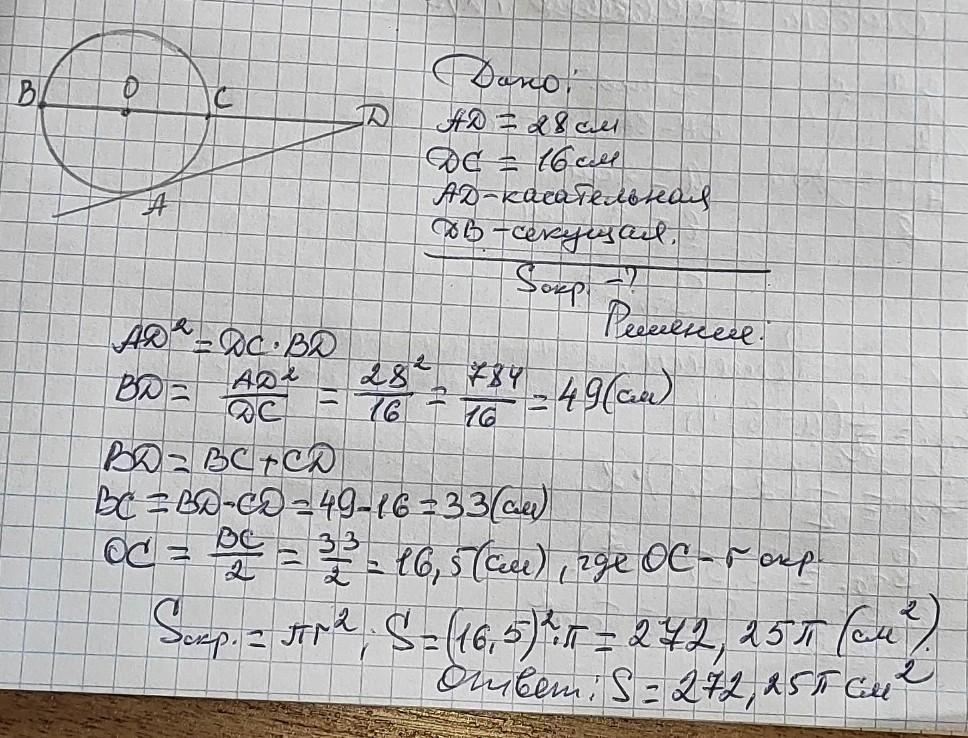 B O C D
A
Дано:
AD = 28 см
DC = 16 см
AD - касательная
DB - секущая.
Sокр. - ?
Решение:
AD² = DC · BD
BD = AD²/DC = 28²/16 = 784/16 = 49 (см)
BD = BC + CD
BC = BD - CD = 49 - 16 = 33 (см)
OC = BC/2 = 33/2 = 16,5 (см), где OC - r окр.
Sокр. = πr²; S = (16,5)² · π = 272,25π (см²).
Ответ: S = 272,25π см²